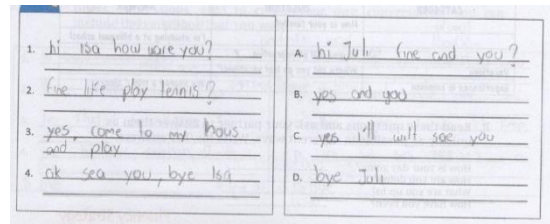 1. hi Isa how uare you?
2. fine life play tennis?
3. yes, come to my hous
and play
4. ok sea you, bye Isa
A. hi Juli fine and you?
B. yes and you
C. yes i'll will see you
D. bye Juli